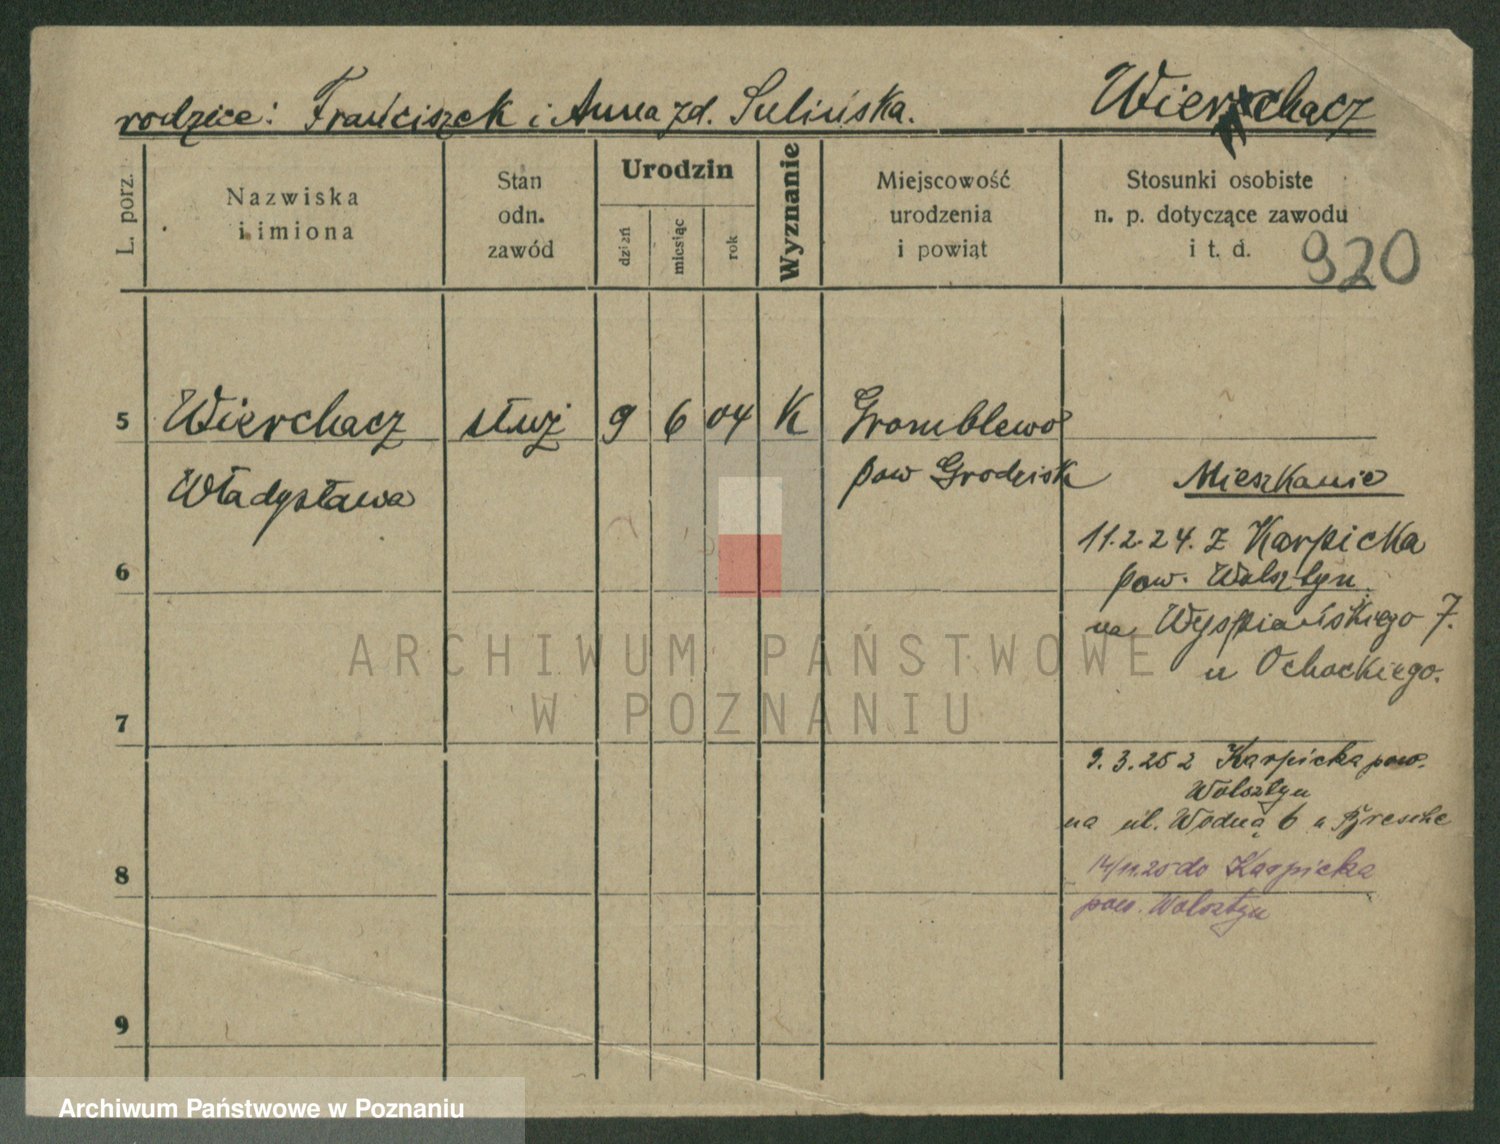 rodzice: Franciszek i Anna zd. Sulińska.
Wierzchacz
L. porz.
Nazwiska
i imiona
Stan
odn.
zawód
Urodzin
dzień
miesiąc
rok
Wyznanie
Miejscowość
urodzenia
i powiąt
Stosunki osobiste
n. p. dotyczące zawodu
i t. d.
920
5 Wierchacz służ 9 6 04 K Gromblewo
Władysława
pow Grodzisk
Mieszkanie
11.2.24. z Karpicka
pow. Wolsztyn
na Wyspiańskiego 7.
u Ochockiego.
6
7
9.3.25 z Karpicka pow.
Wolsztyn
na ul. Wodną 6 u
8
14/11.25 do Karpicka
pow. Wolsztyn
9
ARCHIWUM PAŃSTWOWE
W POZNANIU
Archiwum Państwowe w Poznaniu